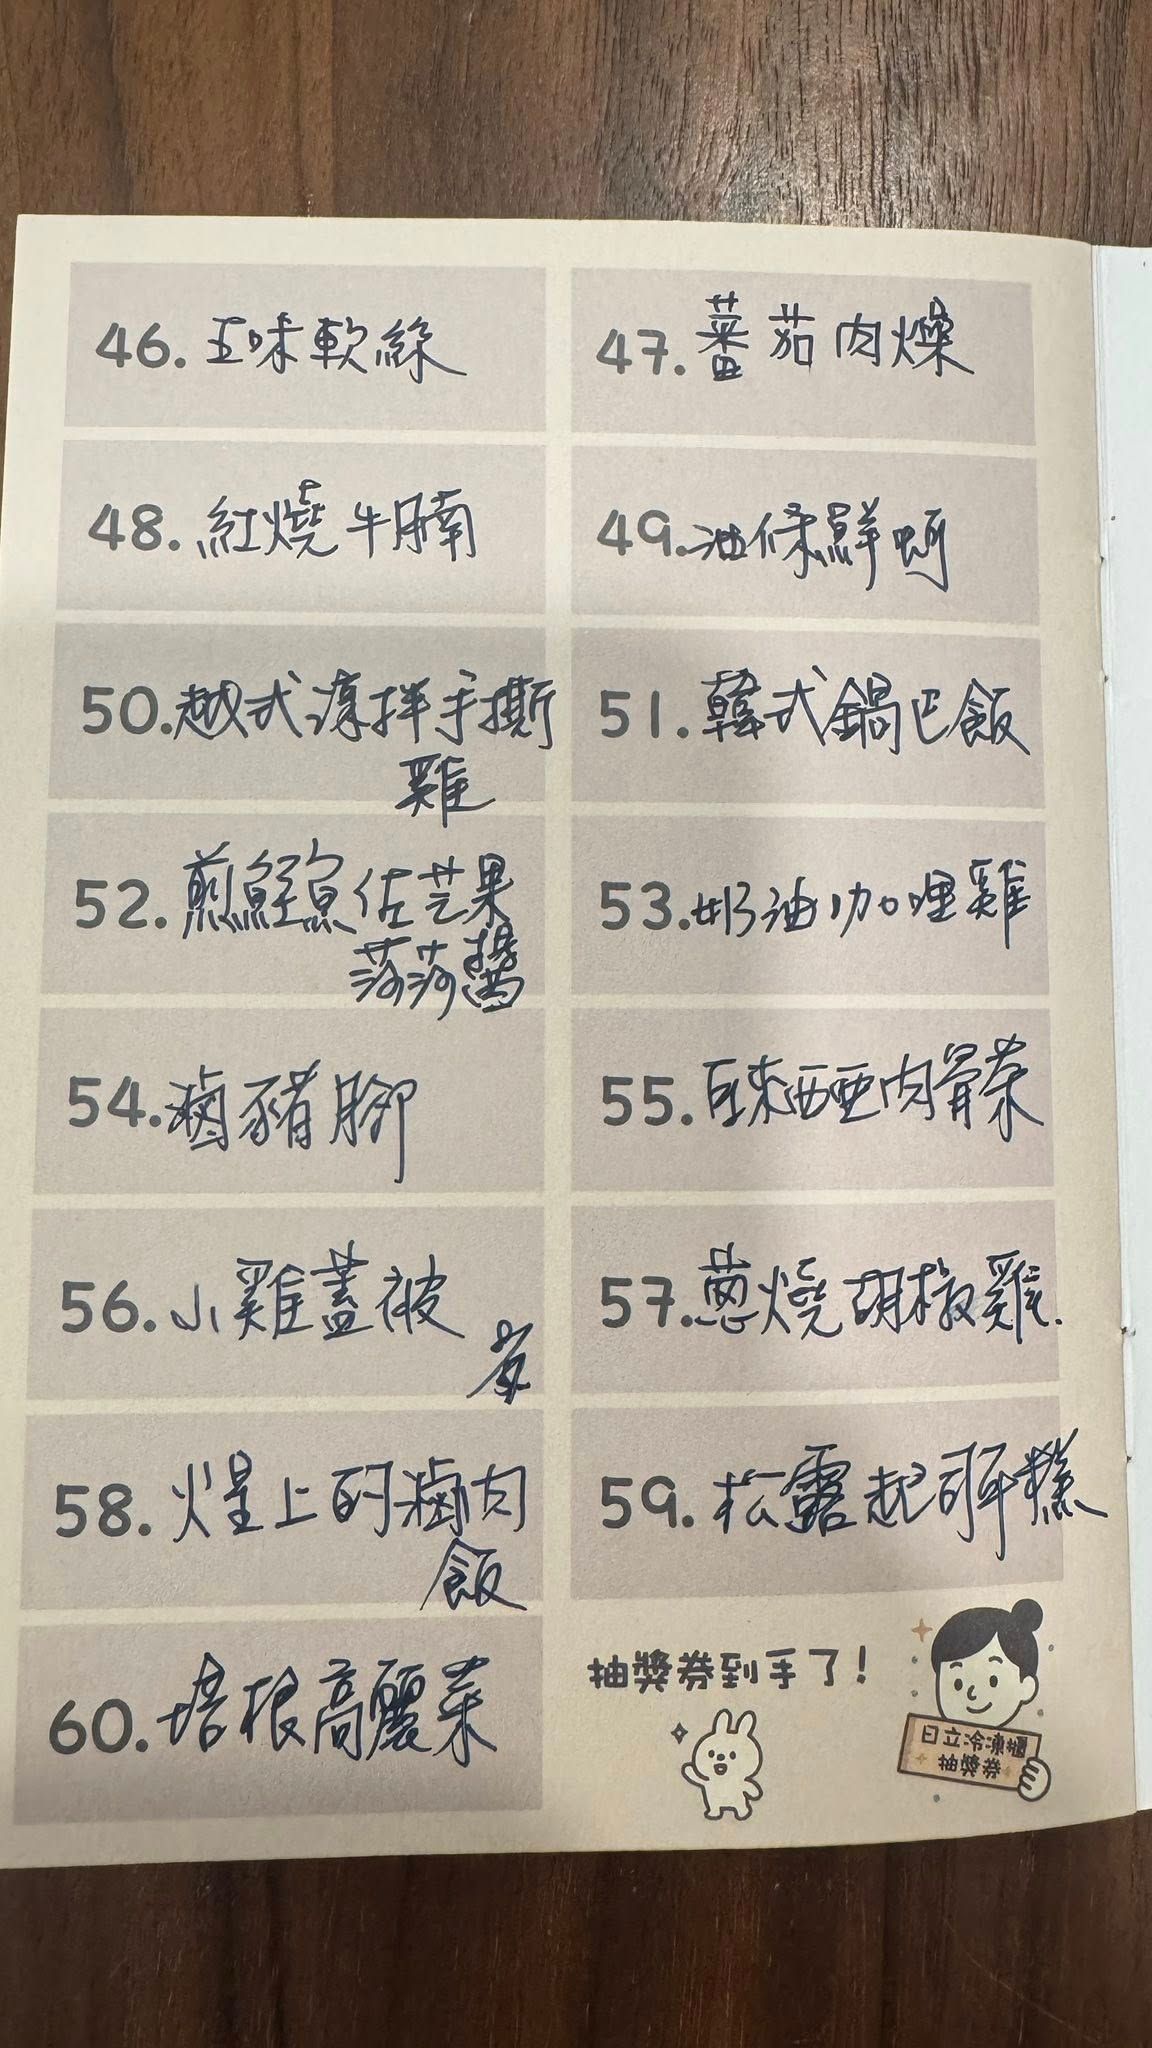 46. 五味軟絲
47. 蕃茄肉燥
48. 紅燒牛腩
49. 油條鮮蚵
50. 越式凉拌手撕
雞
51. 韓式鍋巴飯
52. 煎鮭魚佐芒果
莎莎醬
53. 奶油咖哩雞
54. 滷豬腳
55. 馬來西亞肉骨茶
56. 小雞蓋被
57. 蔥燒胡椒雞.
58. 火星上的滷肉
飯
59. 松露起司年糕
60. 培根高麗菜
抽獎券到手了!
日立冷凍櫃
抽獎券